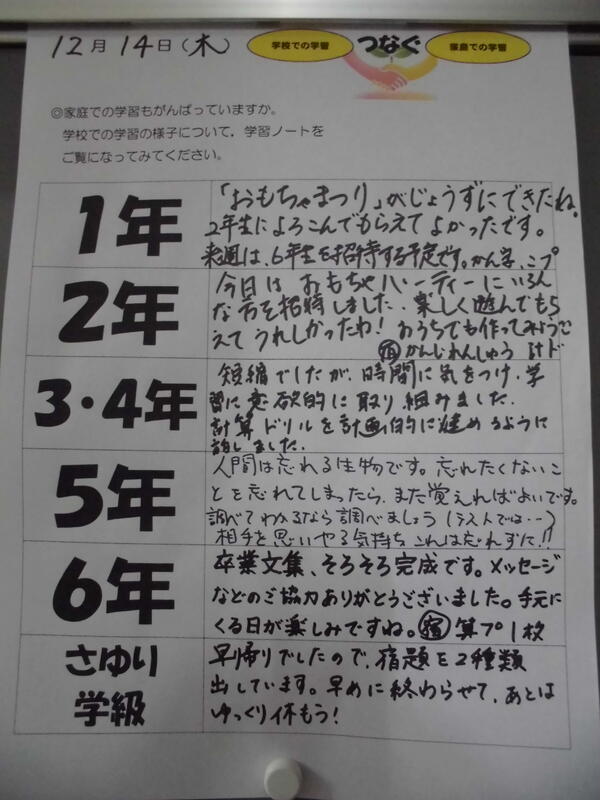 12月14日(木)
学校での学習
つなぐ
家庭での学習
◎家庭での学習もがんばっていますか。
学校での学習の様子について，学習ノートを
ご覧になってみてください。
1年
「おもちゃまつり」がじょうずにできたね。
2年生によろこんでもらえてよかったです。
来週は、6年生を招待する予定です。かん字、こプ
2年
今日は おもちゃパーティーに いろん
な方を招待しました。楽しく遊んでもら
えて うれしかったね! おうちでも作ってみよう
宿 かんじれんしゅう 計ド
3・4年
短縮でしたが、時間に気をつけ、学
習に意欲的に取り組みました。
計算ドリルを計画的に進めるように
話しました。
5年
人間は忘れる生物です。忘れたくないこ
とを忘れてしまったら、また覚えればよいです。
調べてわかるなら調べましょう(テストでは…)
相手を思いやる気持ち これは忘れずに!!
6年
卒業文集、そろそろ完成です。メッセージ
などのご協力ありがとうございました。手元に
くる日が楽しみですね。宿 算プ1枚
さゆり
学級
早帰りでしたので、宿題を2種類
出しています。早めに終わらせて、あとは
ゆっくり休もう!